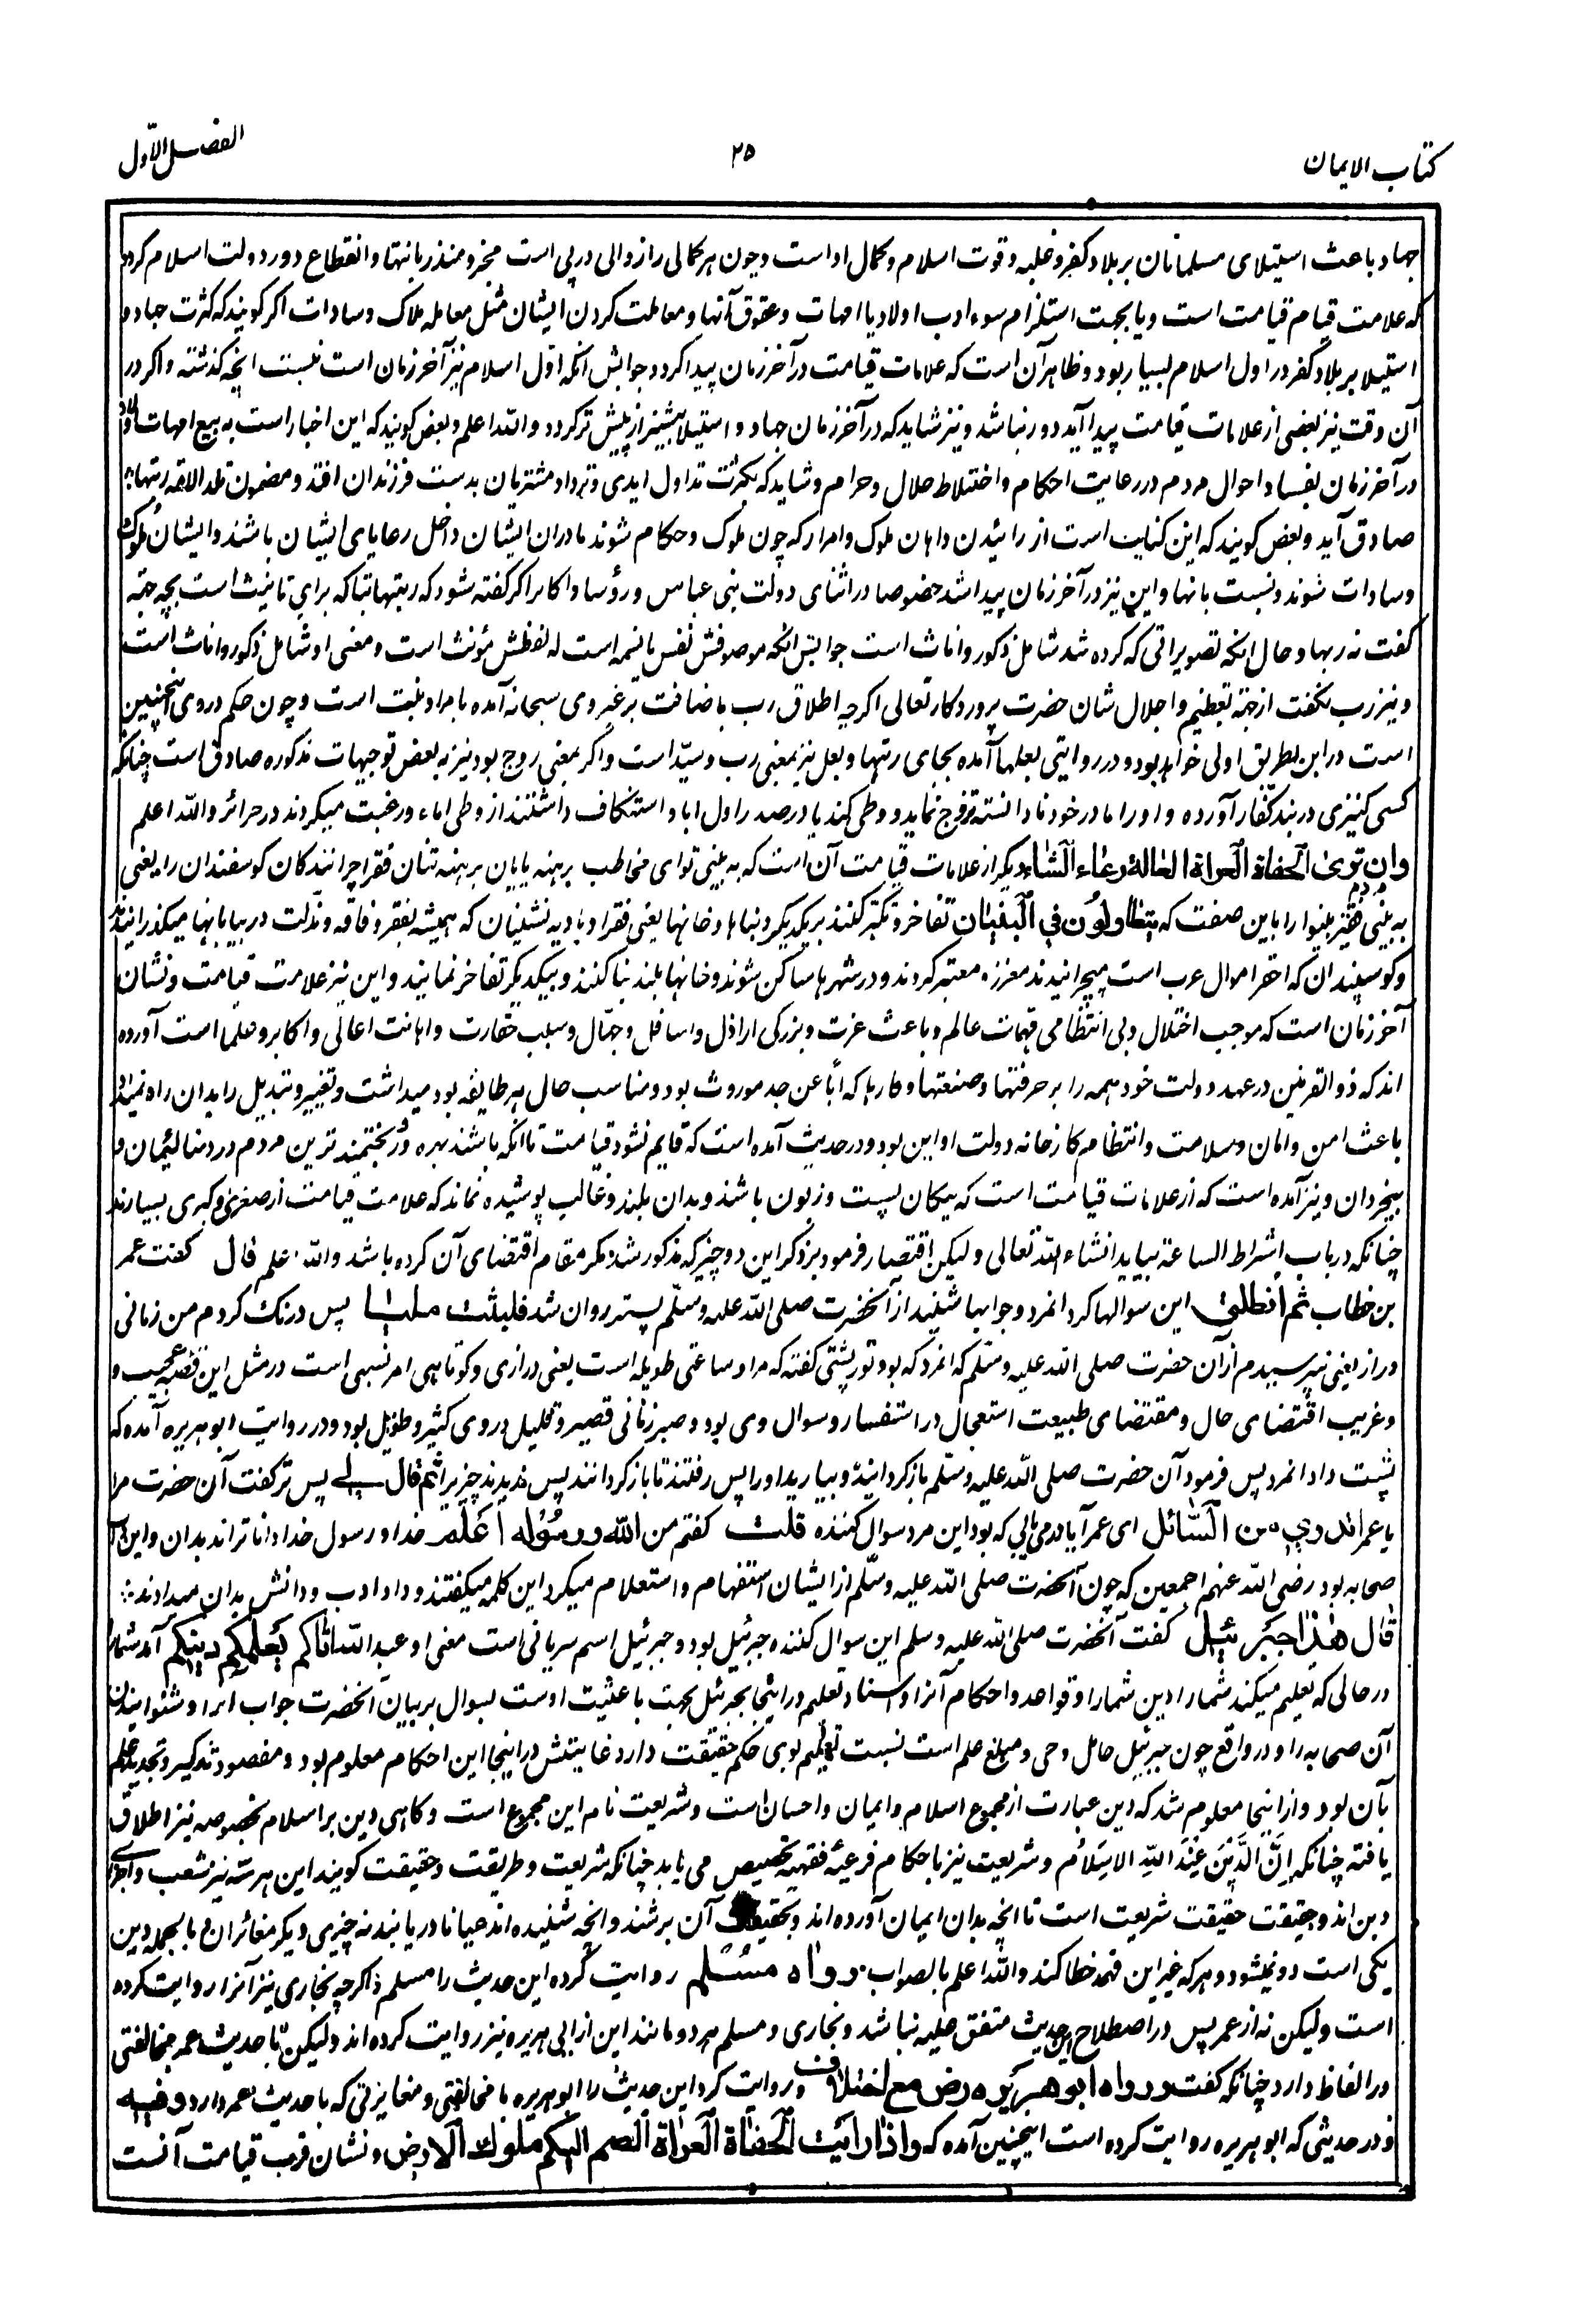 کتاب الایمان
۲۵
الفصل الاول
جهاد باعث استیلای مسلمانان بر بلاد کفر و غلبه و قوت اسلام و کمال او است و چون هر کمالی را زوالی در پی است مخبر و منذر بانتها و انقطاع دور دولت اسلام کردد
که علامت قیام قیامت است و یا بجهت استلزام سوء ادب اولاد با امهات و عقوق آنها و معاملت کردن ایشان مثل معامله ملاک و سادات اکر کویند که کثرت جهاد و
استیلا بر بلاد کفر در اول اسلام بسیار بود و ظاهر آن است که علامات قیامت در آخر زمان پیدا کردد جوابش آنکه اول اسلام نیز آخر زمان است نسبت انچه کذشته و اکر در
آن وقت نیز بعضی از علامات قیامت پیدا آید دور نباشد و نیز شاید که در آخر زمان جهاد و استیلا بیشتر از پیش تر کردد والله اعلم و بعض کویند که این اخبار است به بیع امهات اولاد
در آخر زمان بفساد احوال مردم در رعایت احکام و اختلاط حلال و حرام و شاید که بکثرت تداول ایدی و ترداد مشتریان بدست فرزندان افتد و مضمون تلد الامة ربتها
صادق آید و بعض کویند که این کنایت است از زائیدن داهان ملوک و امرا که چون ملوک و حکام شوند مادران ایشان داخل رعایای ایشان باشند و ایشان ملوک
و سادات شوند و نسبت بانها و این نیز در آخر زمان پیدا شد خصوصا در اثنای دولت بنی عباس و رؤسا و اکابر اکر کفته شود که ربتها بتا که برای تانیث است بچه جهة
کفت نه ربها و حال انکه تصویراتی که کرده شد شامل ذکور و اناث است جوابش انکه موصوفش نفس یا نسمه است که لفظش مؤنث است و معنی او شامل ذکور و اناث است
و نیز رب نکفت از جهة تعظیم و اجلال شان حضرت پروردکار تعالی اکرچه اطلاق رب باضافت بر غیر وی سبحانه آمده یا مراد بنت است و چون حکم در وی اینچنین
است در ابن بطریق اولی خواهد بود و در روایتی بعلها آمده بجای ربتها و بعل نیز بمعنی رب و سید است و اکر بمعنی زوج بود نیز به بعض توجیهات مذکوره صادق است چنانکه
کسی کنیزی در بند کفار آورده و او را مادر خود نادانسته تزوج نماید و وطی کند یا در صدر اول ابا و استنکاف داشتند از وطی اماء و رغبت میکردند در حرائر والله اعلم
وان تری الحفاة العراة العالة رعاء الشاء دیکر از علامات قیامت آن است که به بینی تو ای مخاطب برهنه پایان برهنه تنان فقرا چرانندکان کوسفندان را یعنی
به بینی مردم فقیر بینوا را باین صفت که یتطاولون فی البنیان تفاخر و تکبر کنند بریکدیکر در بناها و خانها یعنی فقرا و بادیه نشینان که همیشه بفقر و فاقه و ذلت در بیابانها میکذرانیدند
و کوسپندان که احقر اموال عرب است میچرانیدند معزز و معتبر کردند و در شهرها ساکن شوند و خانها بلند بنا کنند و بیکدیکر تفاخر نمایند و این نیز علامت قیامت و نشان
آخر زمان است که موجب اختلال و بی انتظامی مهمات عالم و باعث عزت و بزرکی اراذل و اسافل و جهال و سبب حقارت و اهانت اعالی و اکابر و علما است آورده
اند که ذوالقرنین در عهد دولت خود همه را بر حرفتها و صنعتها و کارها که ابا عن جد موروث بود و مناسب حال هر طایفه بود میداشت و تغییر و تبدیل را بدان راه نمیداد
باعث امن و امان و سلامت و انتظام کارخانه دولت او این بود و در حدیث آمده است که قایم نشود قیامت تا انکه باشند بهره ور و بختمند ترین مردم در دنیا لئیمان و
بیخردان و نیز آمده است که از علامات قیامت است که نیکان پست و زبون باشند و بدان بلند و غالب پوشیده نماند که علامت قیامت از صغری و کبری بسیارند
چنانکه در باب اشراط الساعة بیاید انشاء الله تعالی و لیکن اقتصار فرمود بر ذکر این دو چیز که مذکور شد مکر مقام اقتضای آن کرده باشد والله اعلم قال کفت عمر
بن خطاب ثم انطلق این سوالها کرد انمرد و جوابها شنید از آنحضرت صلی الله علیه وسلم پستر روان شد فلبثت ملیا پس درنک کردم من زمانی
دراز یعنی نپرسیدم از آن حضرت صلی الله علیه وسلم که انمرد که بود تورپشتی کفته که مراد ساعتی طویله است یعنی درازی و کوتاهی امر نسبی است در مثل این قضیه عجیب و
و غریب اقتضای حال و مقتضای طبیعت استعجال در استفسار و سوال وی بود و صبر زمانی قصیر و قلیل در وی کثیر و طویل بود و در روایت ابو هریره آمده که
پشت داد انمرد پس فرمود آن حضرت صلی الله علیه وسلم باز کردانید و بیارید او را پس رفتند تا باز کردانند پس ندیدند چیزی را ثم قال لی پس تر کفت آن حضرت مرا
یا عمر اتدری من السائل ای عمر آیا درمی یابی که بود این مرد سوال کننده قلت کفتم من الله ورسوله اعلم خدا و رسول خدا داناتر اند بدان و این
صحابه بود رضی الله عنهم اجمعین که چون آنحضرت صلی الله علیه وسلم از ایشان استفهام و استعلام میکرد این کلمه میکفتند و داد ادب و دانش بدان میدادند
قال هذا جبرئیل کفت آنحضرت صلی الله علیه وسلم این سوال کننده جبرئیل بود و جبرئیل اسم سریانی است معنی او عبد الله اتاکم یعلمکم دینکم آمد شمارا
در حالی که تعلیم میکند شمارا دین شمارا و قواعد و احکام آنرا و اسناد تعلیم در اینجا بجبرئیل بجهت باعثیت اوست بسوال بر بیان آنحضرت جواب انرا و شنوانیدن
آن صحابه را و در واقع چون جبرئیل حامل وحی و مبلغ علم است نسبت تعلیم بوی حکم حقیقت دارد غایتش در اینجا این احکام معلوم بود و مقصود تذکیر و تجدید علم
بآن بود و از اینجا معلوم شد که دین عبارت از مجموع اسلام و ایمان و احسان است و شریعت نام این مجموع است و کاهی دین بر اسلام بخصوصه نیز اطلاق
یافته چنانکه اِنَّ الدِّینَ عِنْدَ اللهِ الاِسْلَامُ و شریعت نیز باحکام فرعیه فقهیه تخصیص می یابد چنانکه شریعت و طریقت و حقیقت کویند این هر سه نیز شعب و اجزای
دین اند و حقیقت حقیقت شریعت است تا انچه بدان ایمان آورده اند و بحقیقت آن برشند و انچه شنیده اند عیانا دریابند نه چیزی دیکر مغائر ان و بالجمله دین
یکی است دو نمیشود و هر که غیر این فهمد خطا کند والله اعلم بالصواب رواه مسلم روایت کرده این حدیث را مسلم ذاکرچه بخاری نیز آنرا روایت کرده
است ولیکن نه از عمر پس در اصطلاح این حدیث متفق علیه نباشد و بخاری و مسلم هر دو مانند این از ابی هریره نیز روایت کرده اند و لیکن با حدیث عمر مخالفتی
در الفاظ دارد چنانکه کفت ورواه ابو هریره رض مع اختلاف و روایت کرد این حدیث را ابو هریره با مخالفتی و مغایرتی که با حدیث عمر دارد وفیه
و در حدیثی که ابو هریره روایت کرده است اینچنین آمده که واذا رایت الحفاة العراة الصم البکم ملوک الارض و نشان قرب قیامت آنست